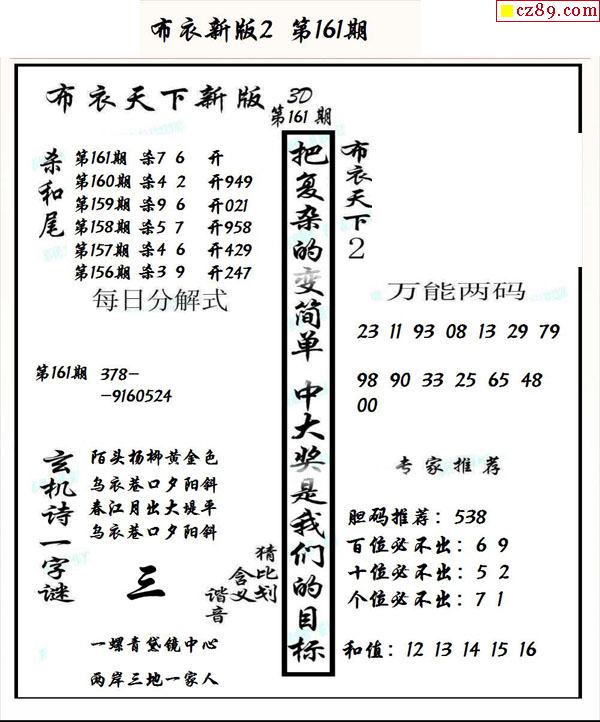 cz89.com
布衣新版2 第161期
布衣天下新版 3D
第161期
杀和尾
第161期 杀7 6 开
第160期 杀4 2 开949
第159期 杀9 6 开021
第158期 杀5 7 开958
第157期 杀4 6 开429
第156期 杀3 9 开247
每日分解式
第161期 378-
-9160524
玄机诗一字谜
陌头杨柳黄金色
乌衣巷口夕阳斜
春江月出大堤平
乌衣巷口夕阳斜
三
猜比划
含义
谐音
一螺青黛镜中心
两岸三地一家人
把复杂的变简单 中大奖是我们的目标
布衣天下2
万能两码
23 11 93 08 13 29 79
98 90 33 25 65 48
00
专家推荐
胆码推荐：538
百位必不出：6 9
十位必不出：5 2
个位必不出：7 1
和值：12 13 14 15 16